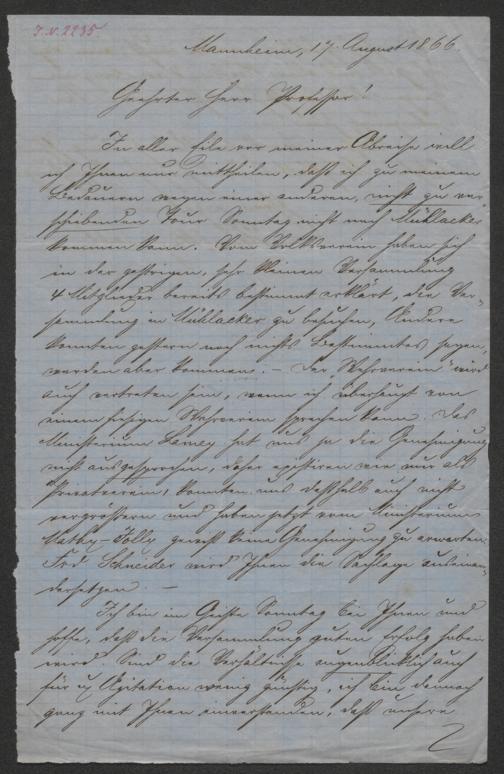 J. N. 2235.
Mannheim, 17. August 1866.
Geehrter Herr Professor!
In aller Eile vor meiner Abreise will
ich Ihnen nur mittheilen, daß ich zu meinem
Bedauern wegen einer anderen, nicht zu ver-
schiebenden Tour Sonntag nicht nach Mühlacker
kommen kann. Vom Volksverein haben sich
in der gestrigen, sehr kleinen Versammlung
4 Mitglieder bereits bestimmt erklärt, die Ver-
sammlung in Mühlacker zu besuchen, Andere
konnten gestern noch nichts Bestimmtes sagen,
werden aber kommen. – Der Wehrverein wird
auch vertreten sein, wenn ich überhaupt von
einem hiesigen Wehrverein sprechen kann. Das
Ministerium Lamey hat uns ja die Genehmigung
nicht ausgesprochen, daher existiren wir nur als
Privatverein, konnten uns deßhalb auch nicht
vergrößern und haben jetzt vom Ministerium
Mathy-Jolly gewiß keine Genehmigung zu erwarten.
Frd. Schneider wird Ihnen die Sachlage auseinan-
dersetzen. –
Ich bin im Geiste Sonntag bei Ihnen und
hoffe, daß die Versammlung guten Erfolg haben
wird. Sind die Verhältnisse augenblicklich auch
für Agitation wenig günstig, ich bin dennoch
ganz mit Ihnen einverstanden, daß unsere